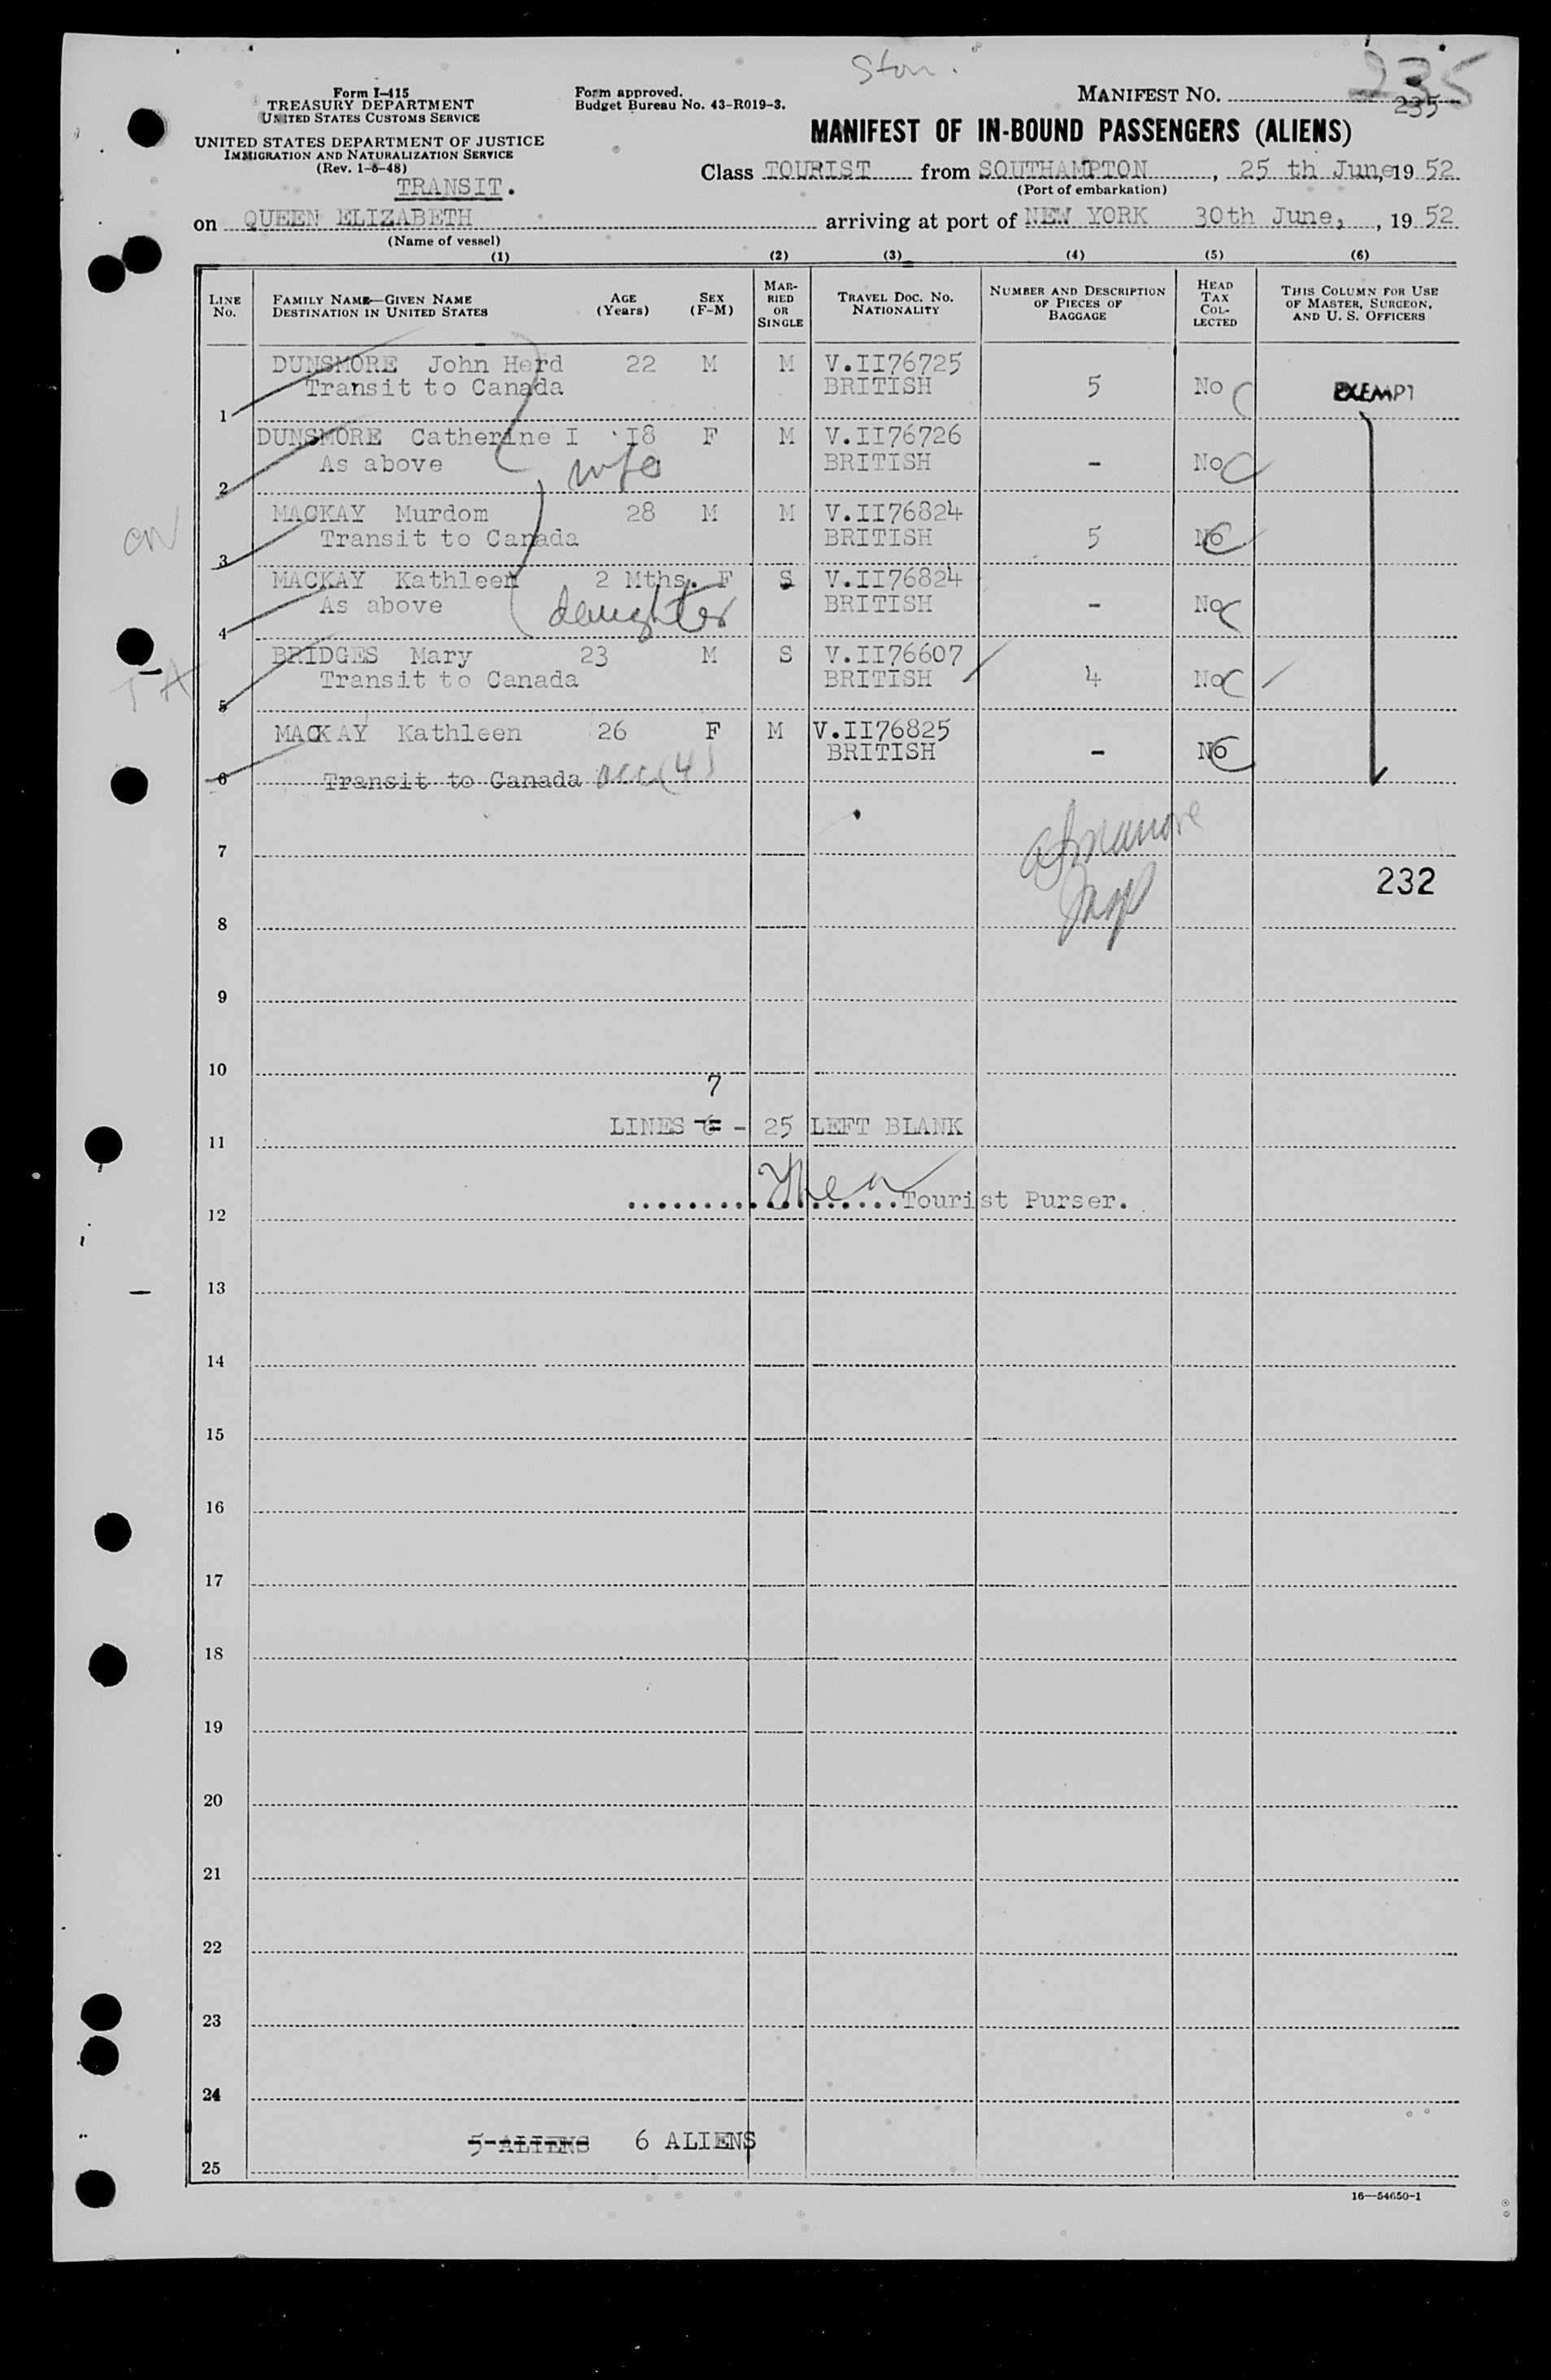 Ston.
235
Form I-415
TREASURY DEPARTMENT
UNITED STATES CUSTOMS SERVICE
UNITED STATES DEPARTMENT OF JUSTICE
IMMIGRATION AND NATURALIZATION SERVICE
(Rev. 1-6-48)
TRANSIT.
Form approved.
Budget Bureau No. 43-R019-3.
MANIFEST NO. 235
MANIFEST OF IN-BOUND PASSENGERS (ALIENS)
Class TOURIST from SOUTHAMPTON, 25 th June, 19 52
(Port of embarkation)
on QUEEN ELIZABETH arriving at port of NEW YORK 30th June, , 19 52
(Name of vessel)
(1) (2) (3) (4) (5) (6)
LINE No. FAMILY NAME—GIVEN NAME DESTINATION IN UNITED STATES AGE (Years) SEX (F-M) MARRIED OR SINGLE TRAVEL DOC. NO. NATIONALITY NUMBER AND DESCRIPTION OF PIECES OF BAGGAGE HEAD TAX COLLECTED THIS COLUMN FOR USE OF MASTER, SURGEON, AND U. S. OFFICERS
DUNSMORE John Herd 22 M M V.II76725
1 Transit to Canada BRITISH 5 No C EXEMPT
DUNSMORE Catherine I I8 F M V.II76726
2 As above wife BRITISH - No C
MACKAY Murdom 28 M M V.II76824
3 Transit to Canada BRITISH 5 No C
MACKAY Kathleen 2 Mths. F S V.II76824
4 As above daughter BRITISH - No C
BRIDGES Mary 23 M S V.II76607
5 Transit to Canada BRITISH 4 No C
MACKAY Kathleen 26 F M V.II76825
BRITISH - No C
6 Transit to Canada acc (4)
7
232
8
9
10
7
LINES 6 - 25 LEFT BLANK
11
Tourist Purser.
12
13
14
15
16
17
18
19
20
21
22
23
24
5-ALIENS 6 ALIENS
25
16—54650-1